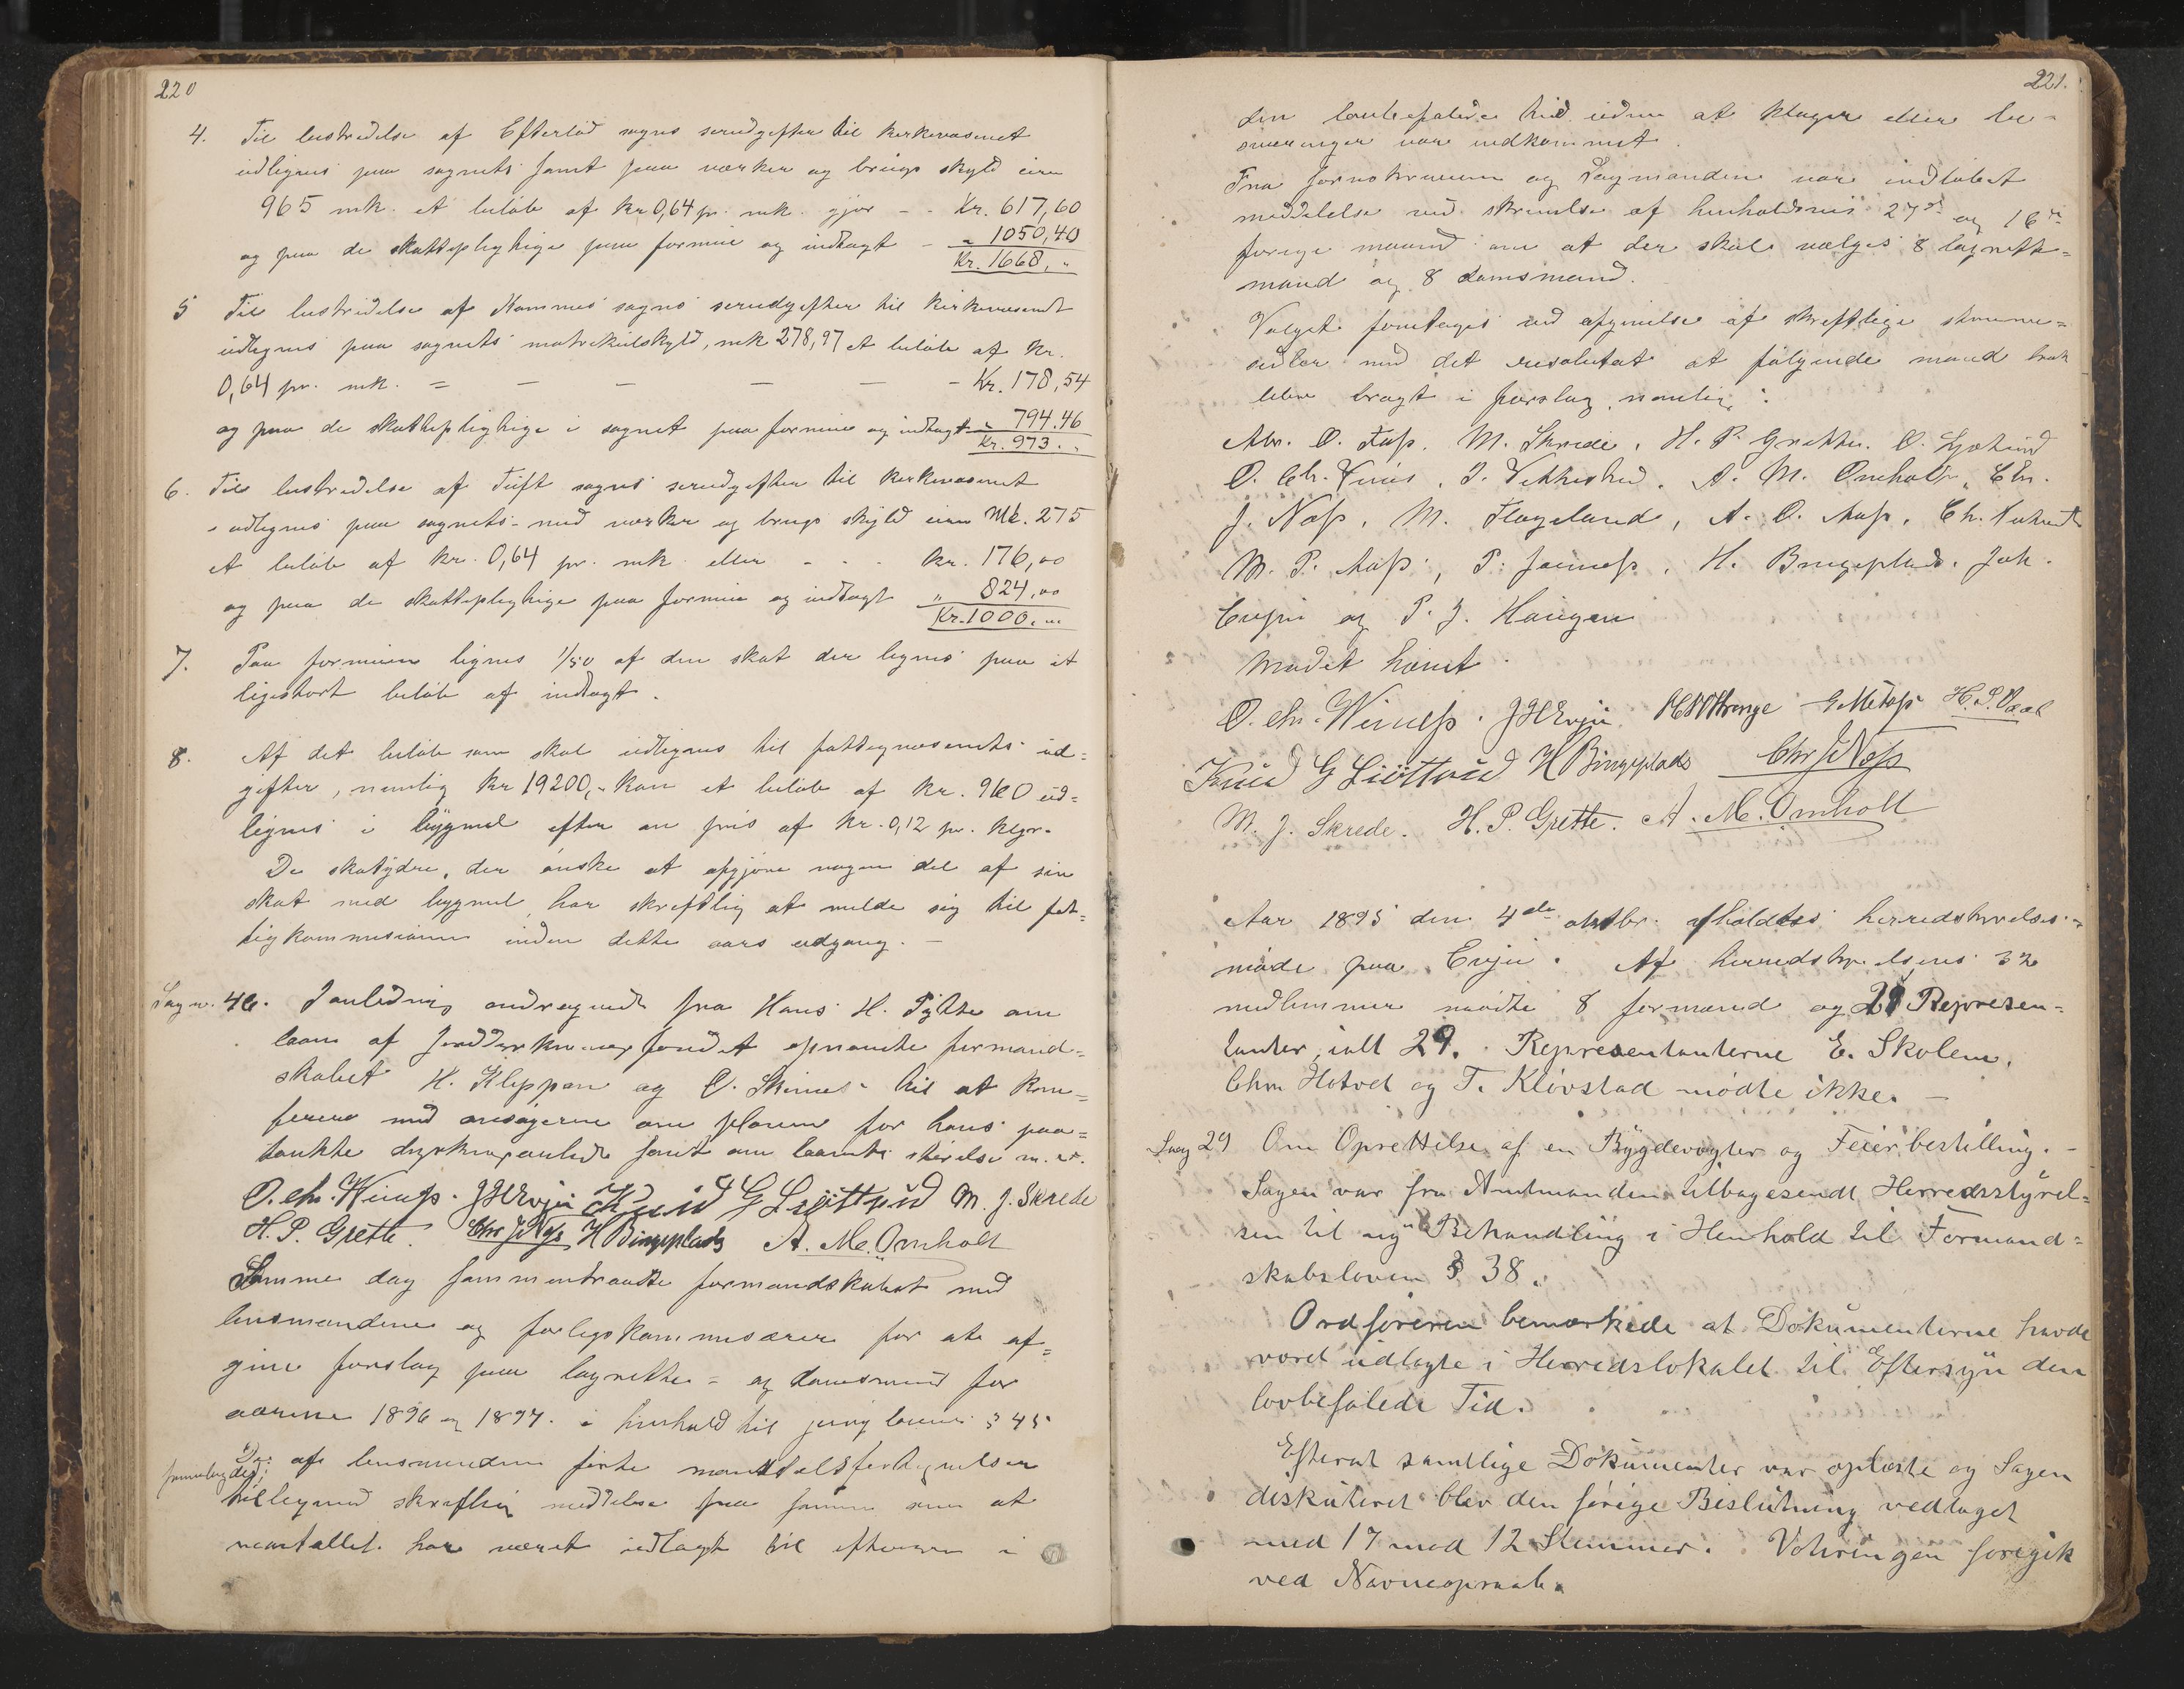 220
4. Til bestridelse af Efteløds sogns særudgifter til kirkevæsenet
udlignes paa sognets samt paa værker og brugs skyld circa
965 mk. et beløb af kr 0,64 pr. mk. gjør - - Kr. 617,60
og paa de skattepligtige paa formue og indtægt - " 1050,40
Kr. 1668,"
5 Til bestridelse af Kommes sogns særudgifter til kirkevæsenet
udlignes paa sognets matrikulskyld, mk 278,97 et beløb af Kr.
0,64 pr. mk. = - - - - - Kr. 178,54
og paa de skattepligtige i sognet paa formue og indtægt - " 794.46
Kr. 973."
6. Til bestridelse af Tuft sogns særudgifter til kirkevæsenet
udlignes paa sognets med værker og brugs skyld circa Mk. 275
et beløb af kr. 0,64 pr. mk. eller - - - kr. 176,00
og paa de skattepligtige paa formue og indtægt " 824,00
Kr. 1000,"
7. Paa formuen lignes 1/50 af den skat der lignes paa et
ligestort beløb af indtægt.
8. Af det beløb som skal udlignes til fattigvæsenets ud=
gifter, nemlig kr 19200,- kan et beløb af kr. 960 ud=
lignes i bygmel efter en pris af kr. 0,12 pr. klgr.
De skatydere, der ønske at afgjøre nogen del af sin
skat med bygmel, har skriftlig at melde sig til fat=
tigkommissionen inden dette aars udgang. -
Sag n. 46. I anledning andragende fra Hans H. Tytte om
laan af Jorddyrkningsfondet opnævnte formand=
skabet H. Kleppen og O. Skinnes til at kon=
ferere med ansøgeren om planen for hans paa=
tænkte dyrkningsanlæg samt om laanets størrelse m. v.
O. Chr. Wirness. J H Evju Knud G Liøttrud M. J. Skrede
H. P. Grette. Chr J Næss H Bingeplads A. M. Omholt
Samme dag sammentraadte formandskabet med
lensmændene og forligskommissærer for at af=
give forslag paa lagrette= og domsmænd for
aarene 1896 og 1897. i henhold til jurylovens § 45
De af lensmændene førte mandtalsfortegnelser
fremlagdes;
tilligemed skriftlig meddelse fra samme om at
mantallet har været udlagt til eftersyn i
221.
den lovbefalede tid uden at klager eller be=
sværinger var indkommet.
Fra sorenskriveren og Lagmanden var indløbet
meddelelse ved skrivelse af henholdsvis 27de og 16de
forrige maaned om at der skal vælges 8 lagrette=
mænd og 8 domsmænd.
Valget foretages ved afgivelse af skriftlige stemme=
sedler med det resultat at følgende mænd
blev bragt i forslag, nemlig:
Abr. O. Foss. M. Skrede, H. P. Grette. O.
O. Chr. Virnes, I. A. M. Omholt, Chr.
J. Næss, M. Flageland, A. O. Aass, Ch.
M. P. Aass, P. H. Bingeplads. Joh.
Evju og P. J. Haugen
Mødet hævet.
O. Chr. Wirness. J H Evju H P. Vaal
Knud G Liøttrud H Bingeplads Chr J Næss
M. J. Skrede. H. P. Grette. A. M. Omholt
Aar 1895 den 4de oktbr. afholdtes herredstyrelses=
møde paa Evju. Af herredstyrelsens 32
medlemmer mødte 8 formænd og 21 Repræsen=
tanter, ialt 29. Repræsentanterne E. Skolem,
Chr. Hotvet og T. Kløvstad mødte ikke. -
Sag 29 Om Oprettelse af en Bygdevægter og Feierbestilling. -
Sagen var fra Amtmanden tilbagesendt Herredsstyrel=
sen til ny Behandling i Henhold til Formand=
skabsloven § 38.
Ordføreren bemærkede at Dokumenterne havde
været udlagte i Herredslokalet til Eftersyn den
lovbefalede Tid.
Efterat samtlige Dokumenter var oplæste og Sagen
diskuteret blev den forige Beslutning vedtaget
med 17 mod 12 Stemmer. Voteringen foregik
ved Navneopraab.